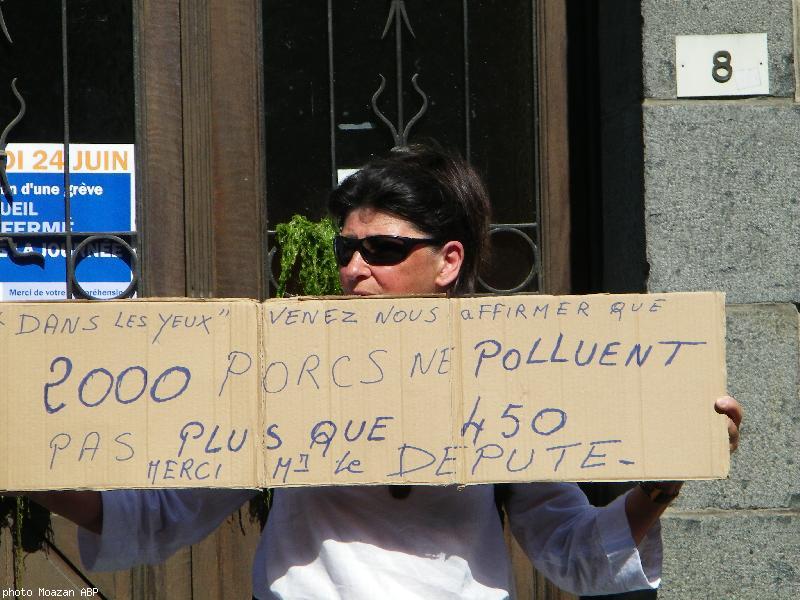 8
DI 24 JUIN
n d'une grève
UEIL
FERMÉ
E LA JOURNÉE
Merci de votre préhension
"DANS LES YEUX" VENEZ NOUS aFFIRMER QUE
2000 PORCS NE POLLUENT
PAS PLUS QUE 450
MERCI Mr le DEPUTE-
photo Moazan ABP